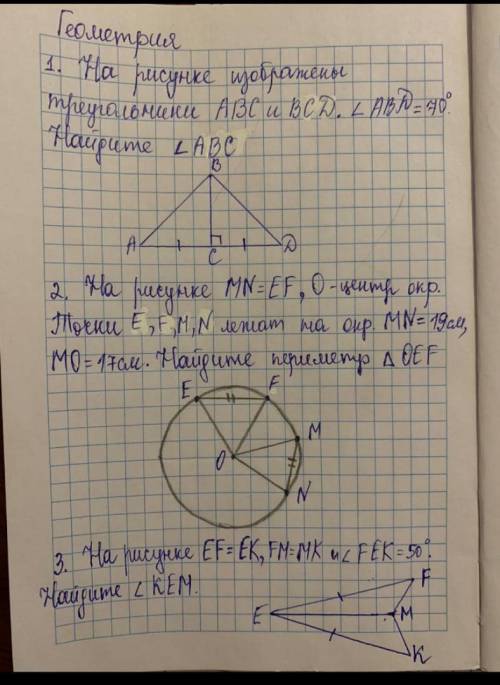 Геометрия
1. На рисунке изображены
треугальники ABC и BCD. ∠ABD=70°.
Найдите ∠ABC
B
A
C
D
2. На рисунке MN=EF, O-центр окр.
Точки E, F, M, N лежат на окр. MN=19см,
MO=17см. Найдите периметр △OEF
E
F
M
O
N
3. На рисунке EF=EK, FM=MK и ∠FEK=50°.
Найдите ∠KEM.
F
E
M
K